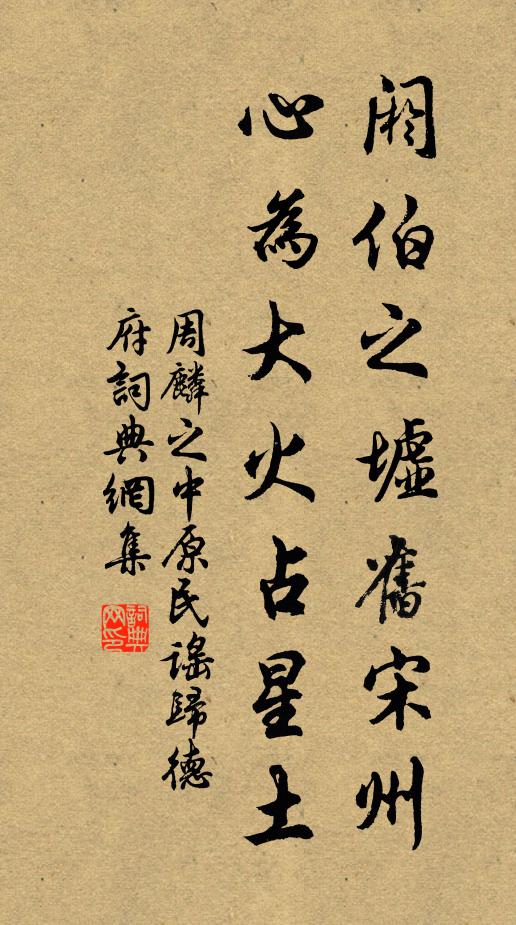 阏伯之墟舊宋州
心為大火占星土
周麟之中原民謠歸德
府詞典網集
詞典
网印